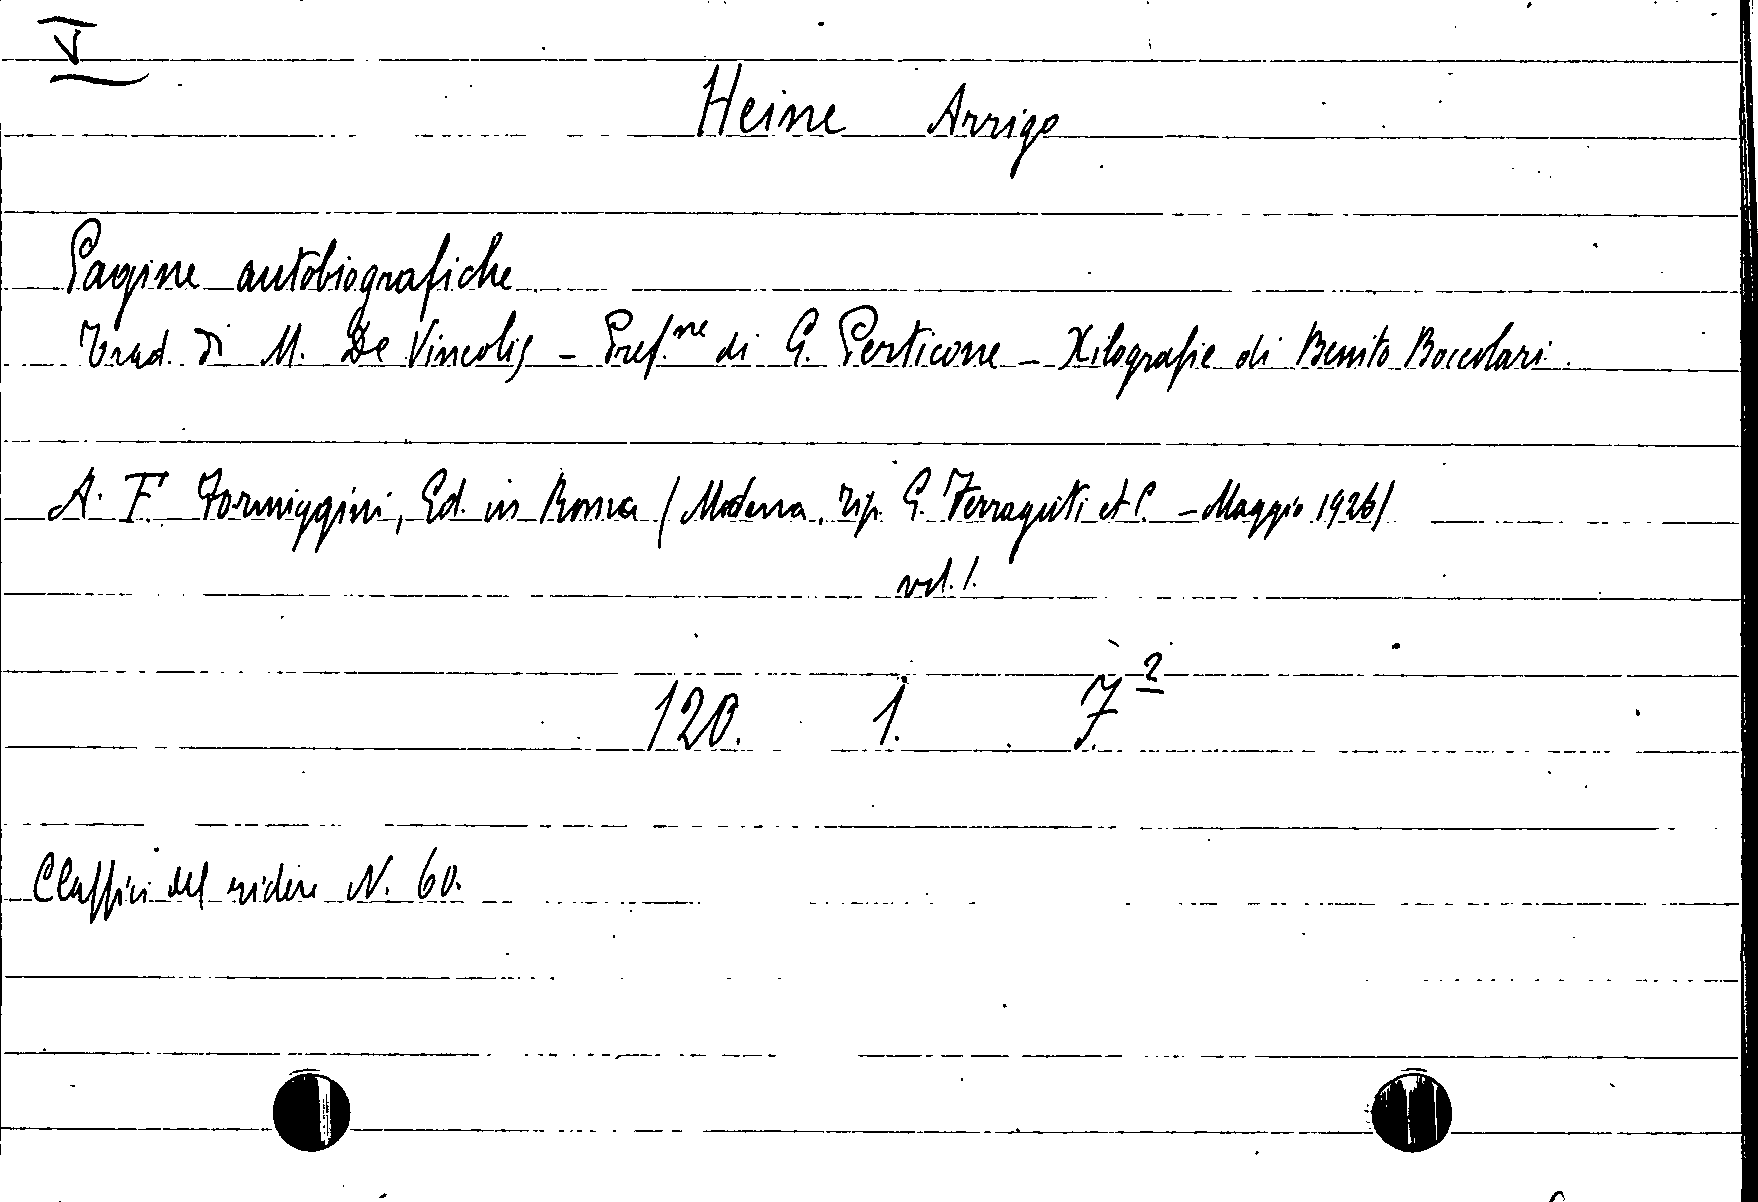 V
Heine Arrigo
Pagine autobiografiche
Trad. di M. De Vincolis - Pref.ne di G. Perticone - Xilografie di Benito Boccolari.
A. F. Formiggini, Ed. in Roma (Modena, Tip. G. Ferraguti et C. - Maggio 1926)
vol. 1.
120. 1. 7.2
Classici del ridere N. 60.